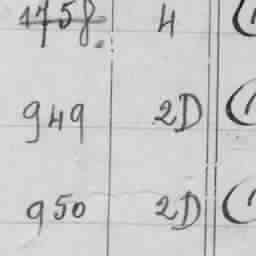 1758. 4 (
949 2D (
950 2D (